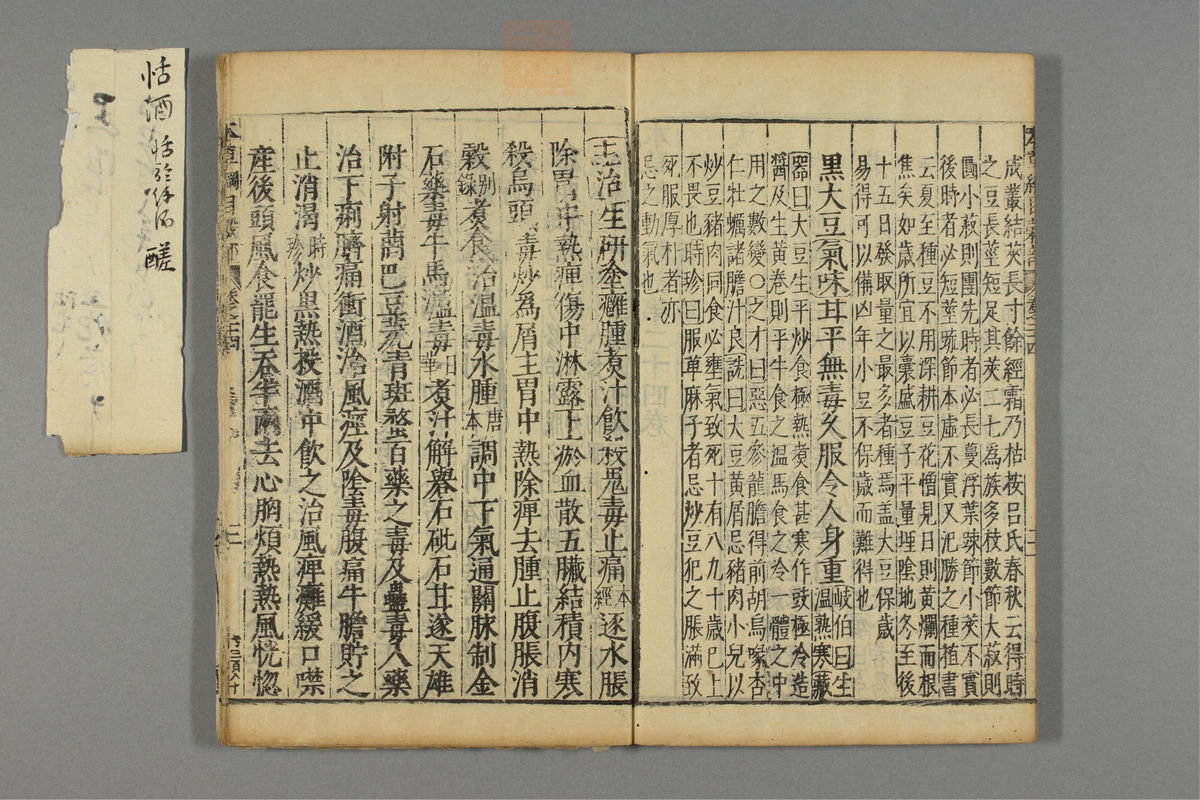 成叢結莢長寸餘經霜乃枯按呂氏春秋云得時
之豆長莖短足其莢二七爲族多枝數節大菽則
圓小菽則團先時者必長蔓浮葉疎節小莢不實
後時者必短莖疎節本虛不實又氾勝之種植書
云夏至種豆不用深耕豆花憎見日則黃爛而根
焦矣知歲所宜以囊盛豆子平量埋陰地冬至後
十五日發取量之最多者種焉盖大豆保歲
易得可以備凶年小豆不保歲而難得也
黑大豆氣味甘平無毒久服令人身重岐伯曰生溫熟寒藏
器曰大豆生平炒食極熱煮食甚寒作豉極冷造
醬及生黃卷則平牛食之溫馬食之冷一體之中
用之數變〇之才曰惡五參龍膽得前胡烏喙杏
仁牡蠣諸膽汁良詵曰大豆黃屑忌豬肉小兒以
炒豆豬肉同食必壅氣致死十有八九十歲已上
不畏也時珍曰服萆麻子者忌炒豆犯之脹滿致
死服厚朴者亦
忌之動氣也
主治生研塗癰腫煮汁飲殺鬼毒止痛本經逐水脹
除胃中熱痺傷中淋露下瘀血散五臟結積內寒
殺烏頭毒炒為屑主胃中熱除痺去腫止腹脹消
穀別錄煮食治溫毒水腫唐本調中下氣通關脉制金
石藥毒牛馬溫毒日華煮汁解礜石砒石甘遂天雄
附子射罔巴豆芫青斑蝥百藥之毒及蠱毒入藥
治下痢臍痛衝酒治風痙及陰毒腹痛牛膽貯之
止消渴時珍炒黑熱投酒中飲之治風痺癱緩口噤
産後頭風食罷生吞半兩去心胸煩熱熱風恍惚
本草綱目穀部
卷之二四
三